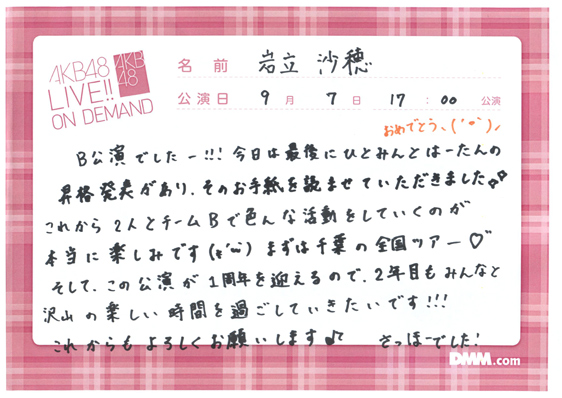 AKB48
LIVE!!
ON DEMAND
AKB
48
名前 岩立 沙穂
公演日 9月 7日 17:00 公演
おめでとう、(´ω`)ノ
B公演でしたー!!! 今日は最後にひとみんとはーたんの
昇格発表があり、そのお手紙を読ませていただきました
これから2人とチームBで色んな活動をしていくのが
本当に楽しみです(*´ω`) まずは千葉の全国ツアー♡
そして、この公演が1周年を迎えるので、2年目もみんなと
沢山の楽しい時間を過ごしていきたいです!!!
これからもよろしくお願いします♪ さっほーでした!
DMM.com